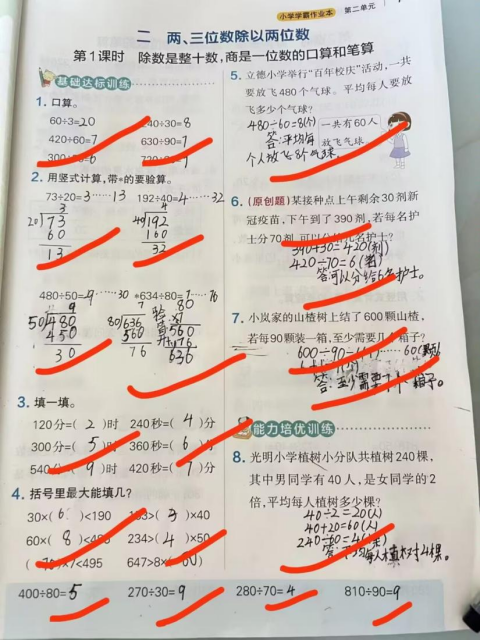 小学学霸作业本 第二单元
二 两、三位数除以两位数
第1课时 除数是整十数,商是一位数的口算和笔算
基础达标训练
1. 口算。
60÷3=20 240÷30=8
420÷60=7 630÷90=7
2. 用竖式计算,带*的要验算。
73÷20=3……13 192÷40=4……32
3 4
20 73 40 192
60 160
13 32
480÷50=9……30 *634÷80=7……76
9 7 验算
50 480 80 636 80
450 560 560
30 76 636
3. 填一填。
120分=( 2 )时 240秒=( 4 )分
300分=( 5 )时 360秒=( 6 )分
540分=( 9 )时 420秒=( 7 )分
4. 括号里最大能填几?
30×( 6 )<190 163>( )×40
60×( 8 )<495 234>( 4 )×50
( )×7<495 647>8×( 80 )
5. 立德小学举行“百年校庆”活动,一共
要放飞480个气球。平均每人要放
飞多少个气球?
480÷60=8(个)
一共有60人
放飞气球
答:平均每
个人放飞8个气球。
6. (原创题)某接种点上午剩余30剂新
冠疫苗,下午到了390剂,若每名护
士分70剂,可以分给几名护士?
390+30=420(剂)
420÷70=6(名)
答:可以分给6名护士。
7. 小岚家的山楂树上结了600颗山楂,
若每90颗装一箱,至少需要几个箱子?
600÷90=6(个)……60(颗)
答:至少需要7个箱子。
能力培优训练
8. 光明小学植树小分队共植树240棵,
其中男同学有40人,是女同学的2
倍,平均每人植树多少棵?
40÷2=20(人)
40+20=60(人)
240÷60=4(棵)
答:平均每人植树4棵。
400÷80=5 270÷30=9 280÷70=4 810÷90=9